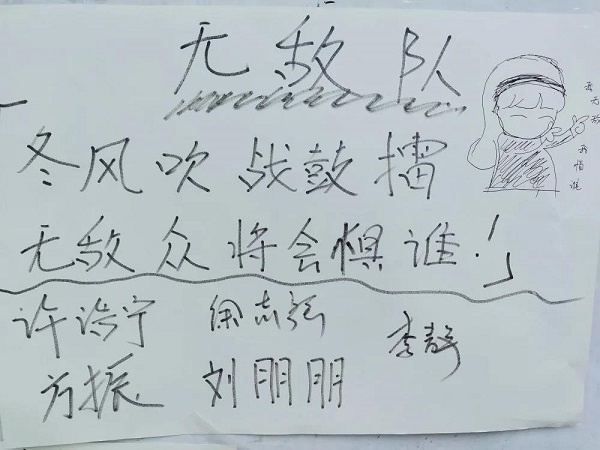 无敌队
冬风吹战鼓擂
无敌众将会惧谁！
许浩宁 徐志强 李静
方振 刘朋朋
吾无敌
我怕谁